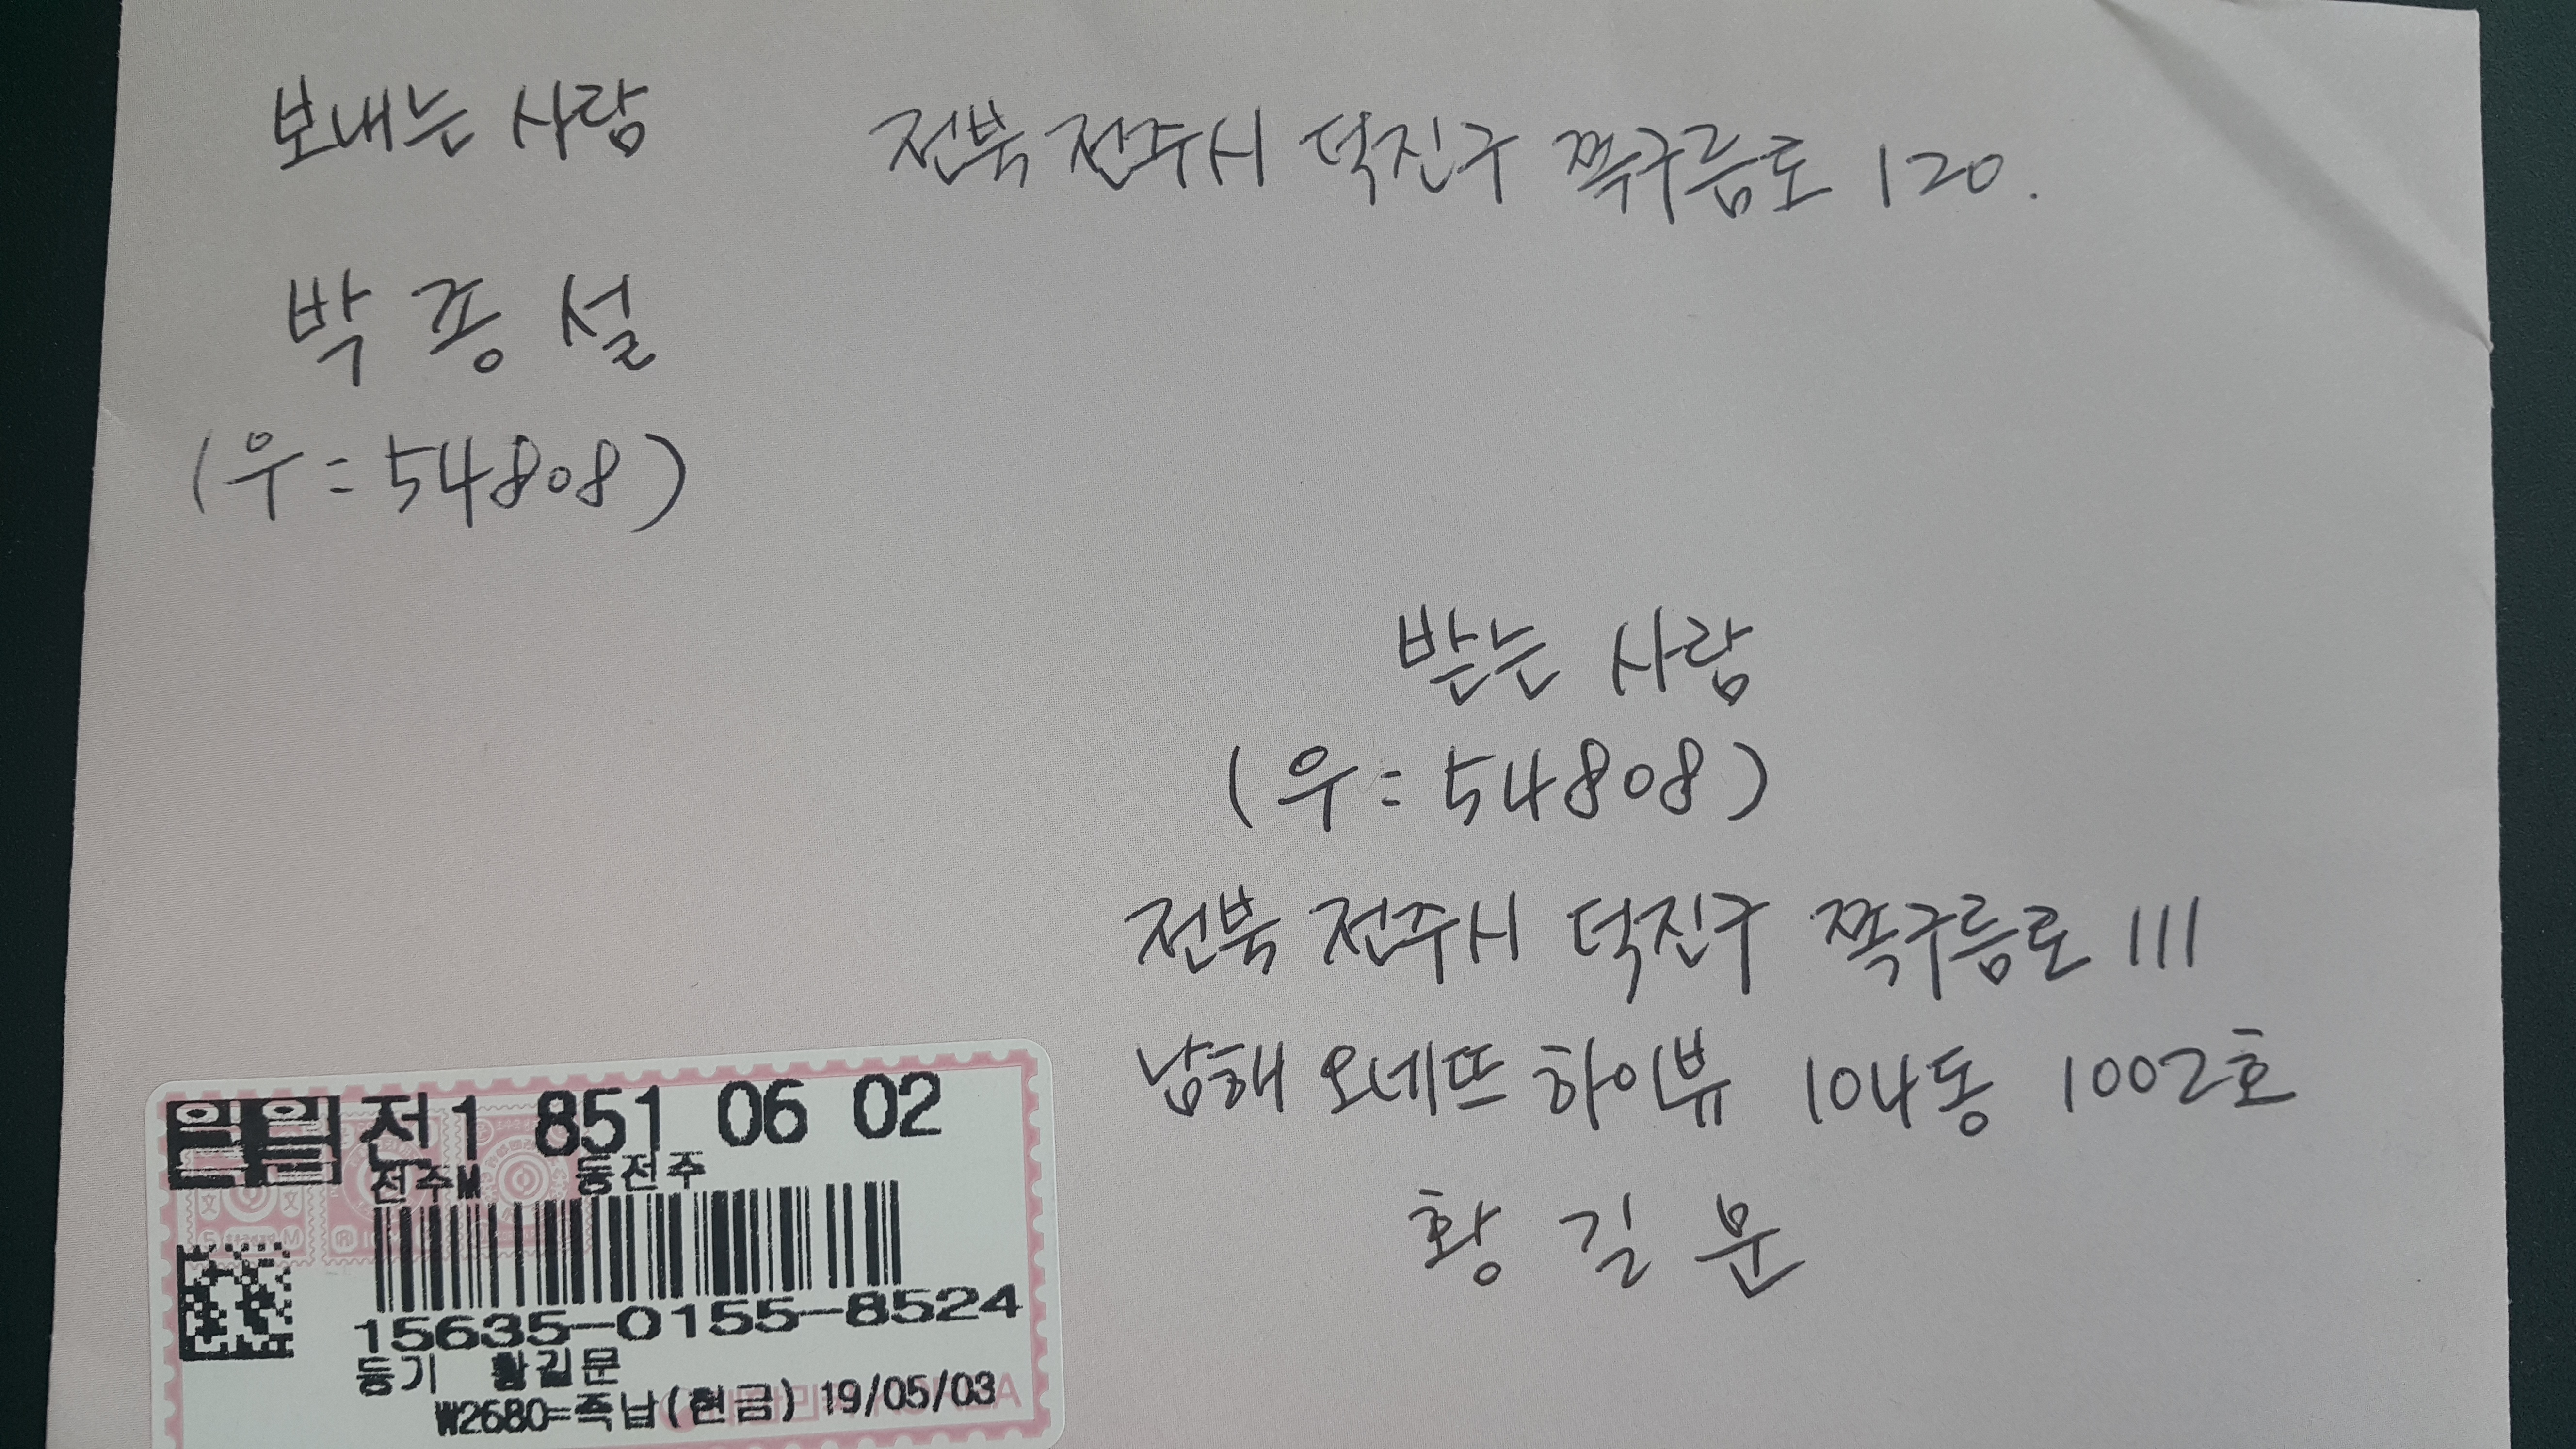 보내는 사람 전북 전주시 덕진구 쪽구름로 120.
박종설
(우=54808)
받는 사람
(우=54808)
전북 전주시 덕진구 쪽구름로 111
남해 오네뜨 하이뷰 104동 1002호
황길문
익일 전1 851 06 02
전주M 동전주
15635-0155-8524
등기 황길문
₩2680=즉납(현금) 19/05/03